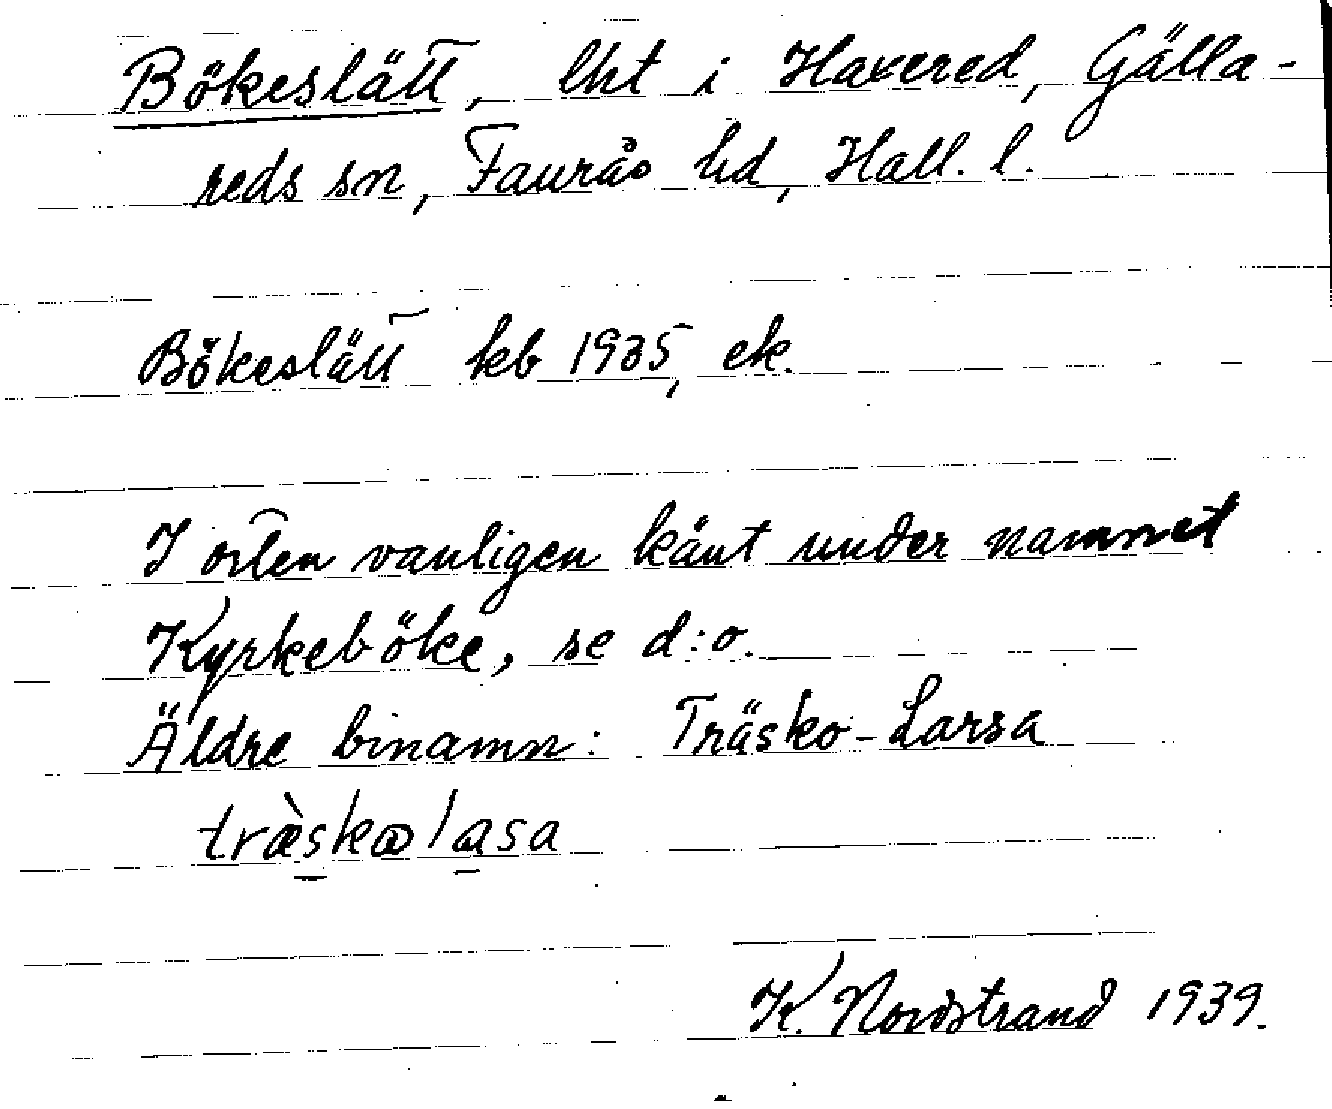 Bökeslätt, lht i Haxered, Gälla-
reds sn, Faurås hd, Hall. l.
Bökeslätt kb 1935, ek.
I orten vanligen känt under namnet
Kyrkeböke, se d:o.
Äldre binamn: Träsko-Larsa
træ̀skωlasa
K. Nordstrand 1939.